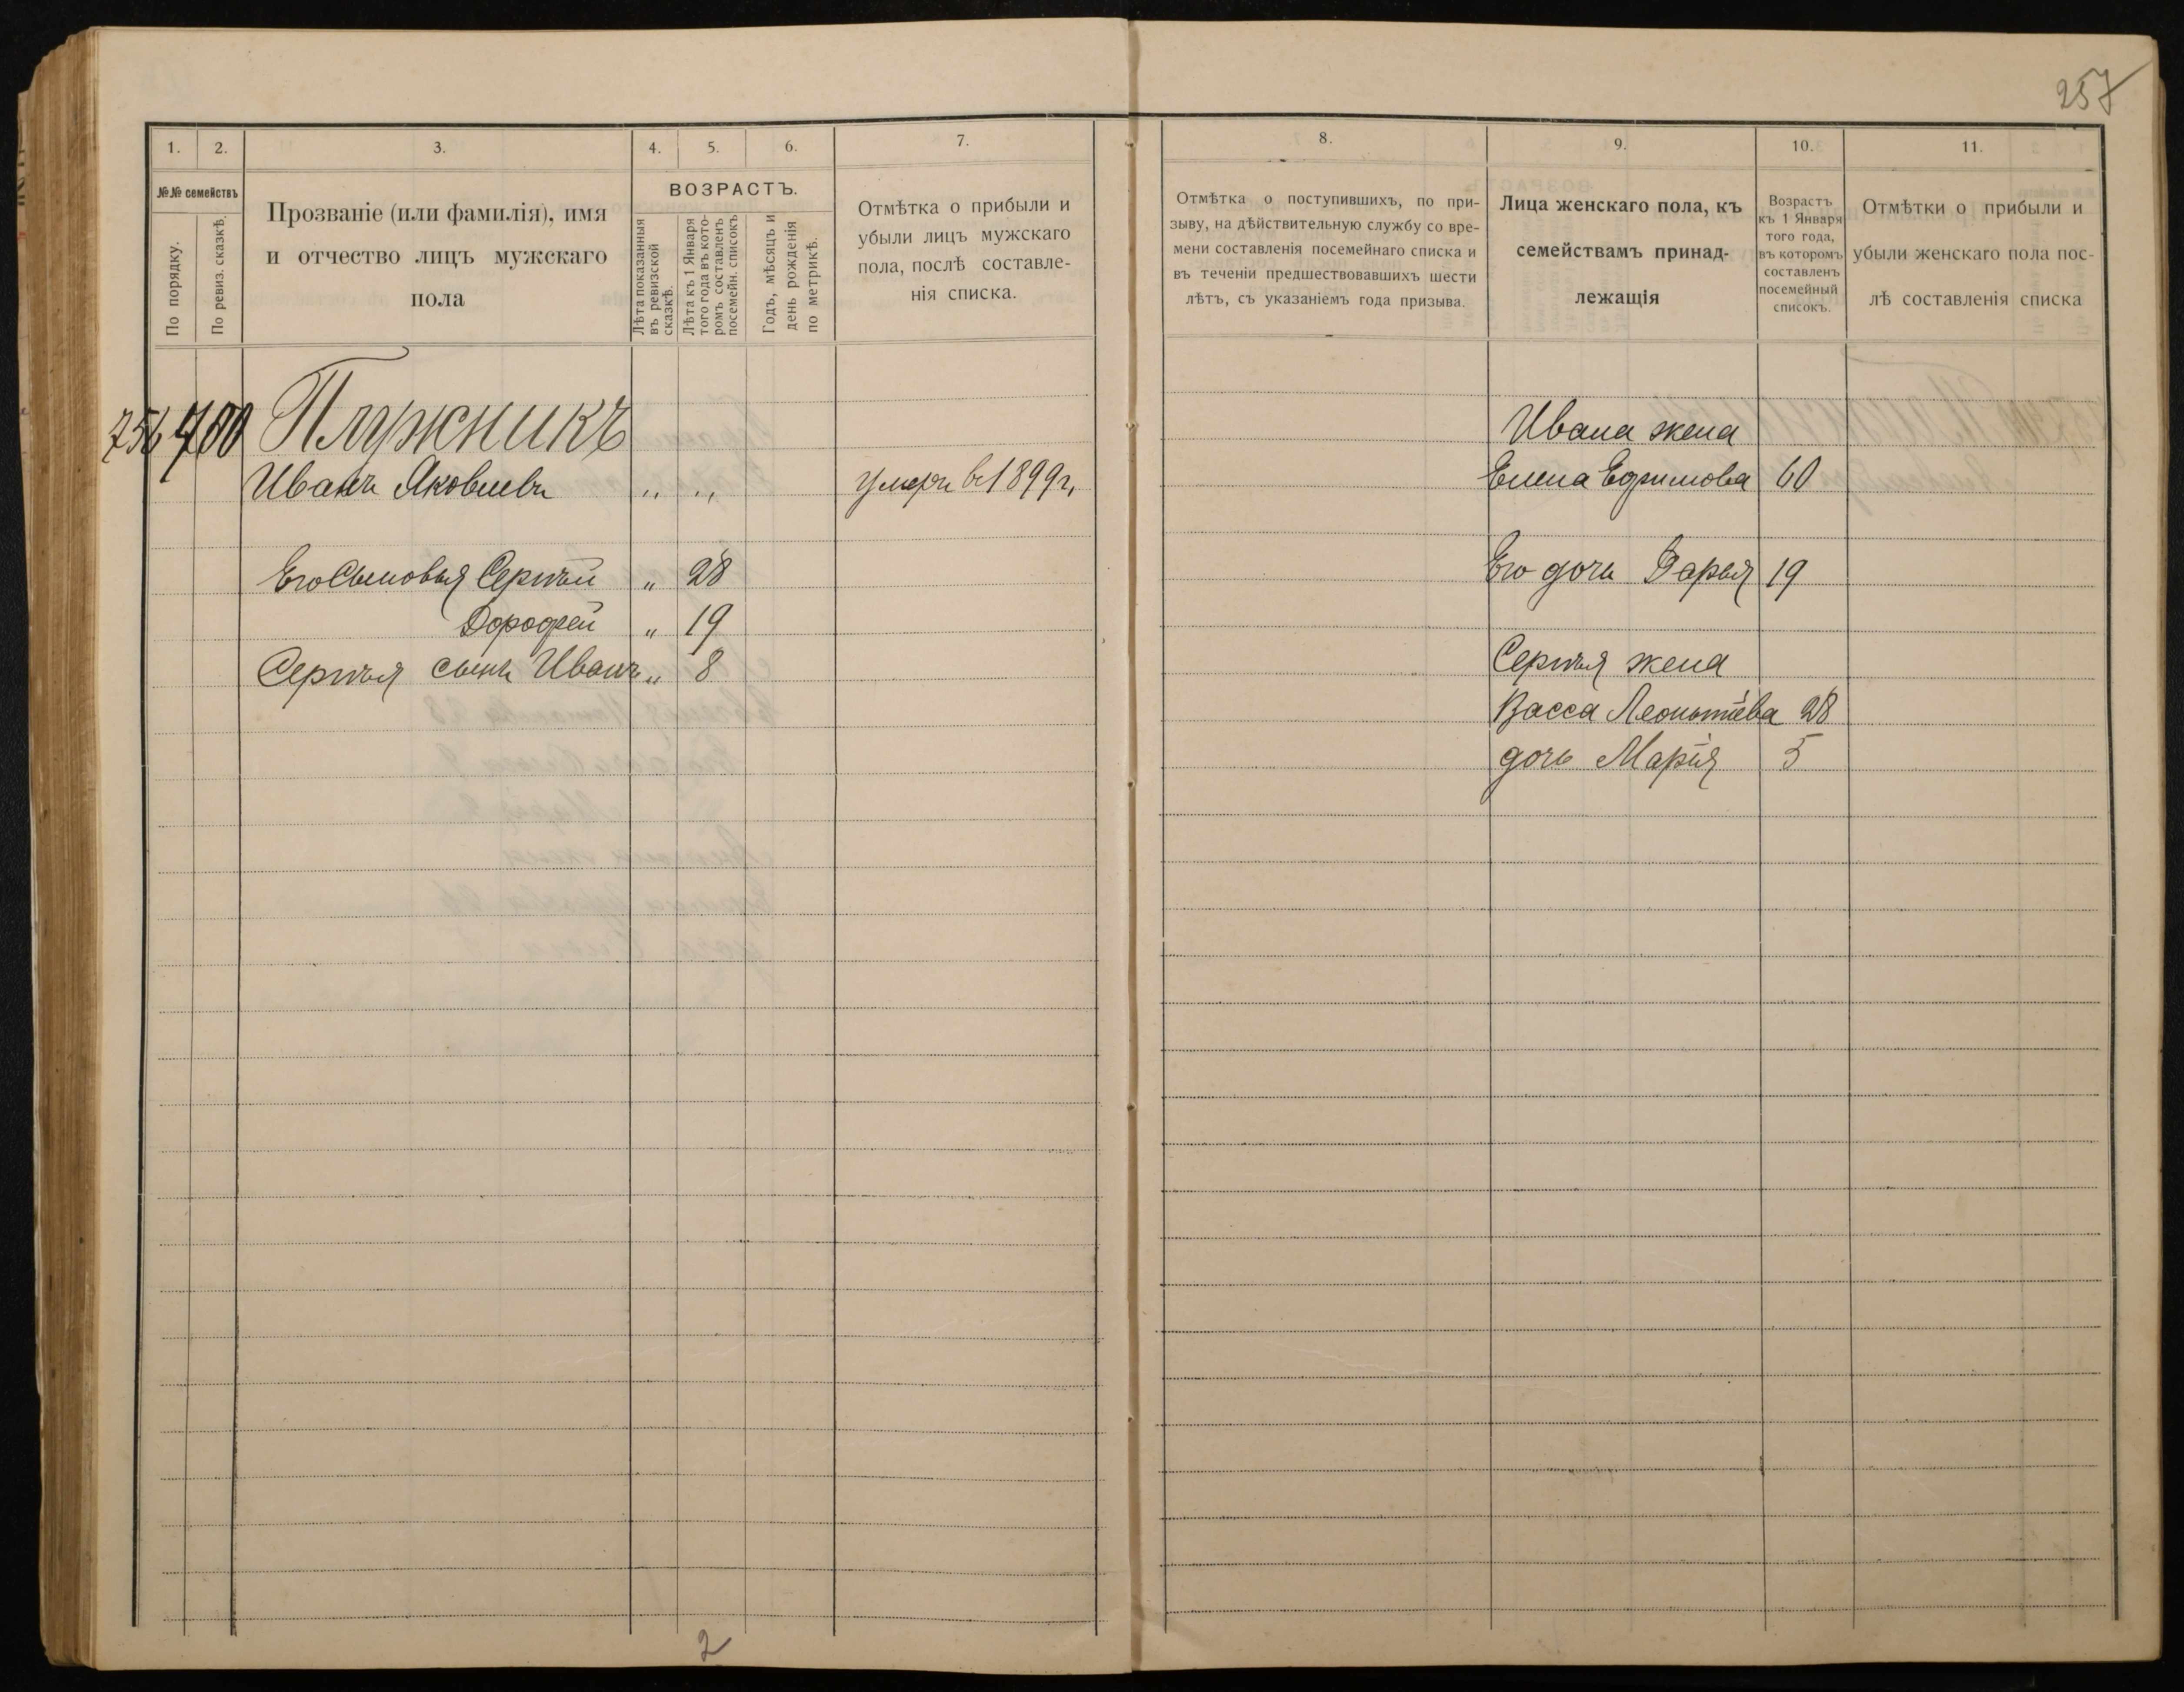 257
1. 2. 3. 4. 5. 6. 7.
№№ семействъ
По порядку.
По ревиз. сказкѣ.
Прозваніе (или фамилія), имя
и отчество лицъ мужскаго
пола
ВОЗРАСТЪ.
Лѣта показанныя
въ ревизской
сказкѣ.
Лѣта къ 1 Января
того года въ кото-
ромъ составленъ
посемейн. списокъ
Годъ, мѣсяцъ и
день рожденія
по метрикѣ.
Отмѣтка о прибыли и
убыли лицъ мужскаго
пола, послѣ составле-
нія списка.
756 700 Плужникъ
Иванъ Яковлевъ „ „ умеръ въ 1899 г.
Его Сыновья Сергѣй „ 28
Дорофей „ 19
Сергѣя сынъ Иванъ „ 8
2
8. 9. 10. 11.
Отмѣтка о поступившихъ, по при-
зыву, на дѣйствительную службу со вре-
мени составленія посемейнаго списка и
въ теченіи предшествовавшихъ шести
лѣтъ, съ указаніемъ года призыва.
Лица женскаго пола, къ
семействамъ принад-
лежащія
Возрастъ
къ 1 Января
того года,
въ которомъ
составленъ
посемейный
списокъ.
Отмѣтки о прибыли и
убыли женскаго пола пос-
лѣ составленія списка
Ивана жена
Елена Ефимова 60
Его дочь Дарья 19
Сергѣя жена
Васса Леонтіева 28
дочь Марія 5